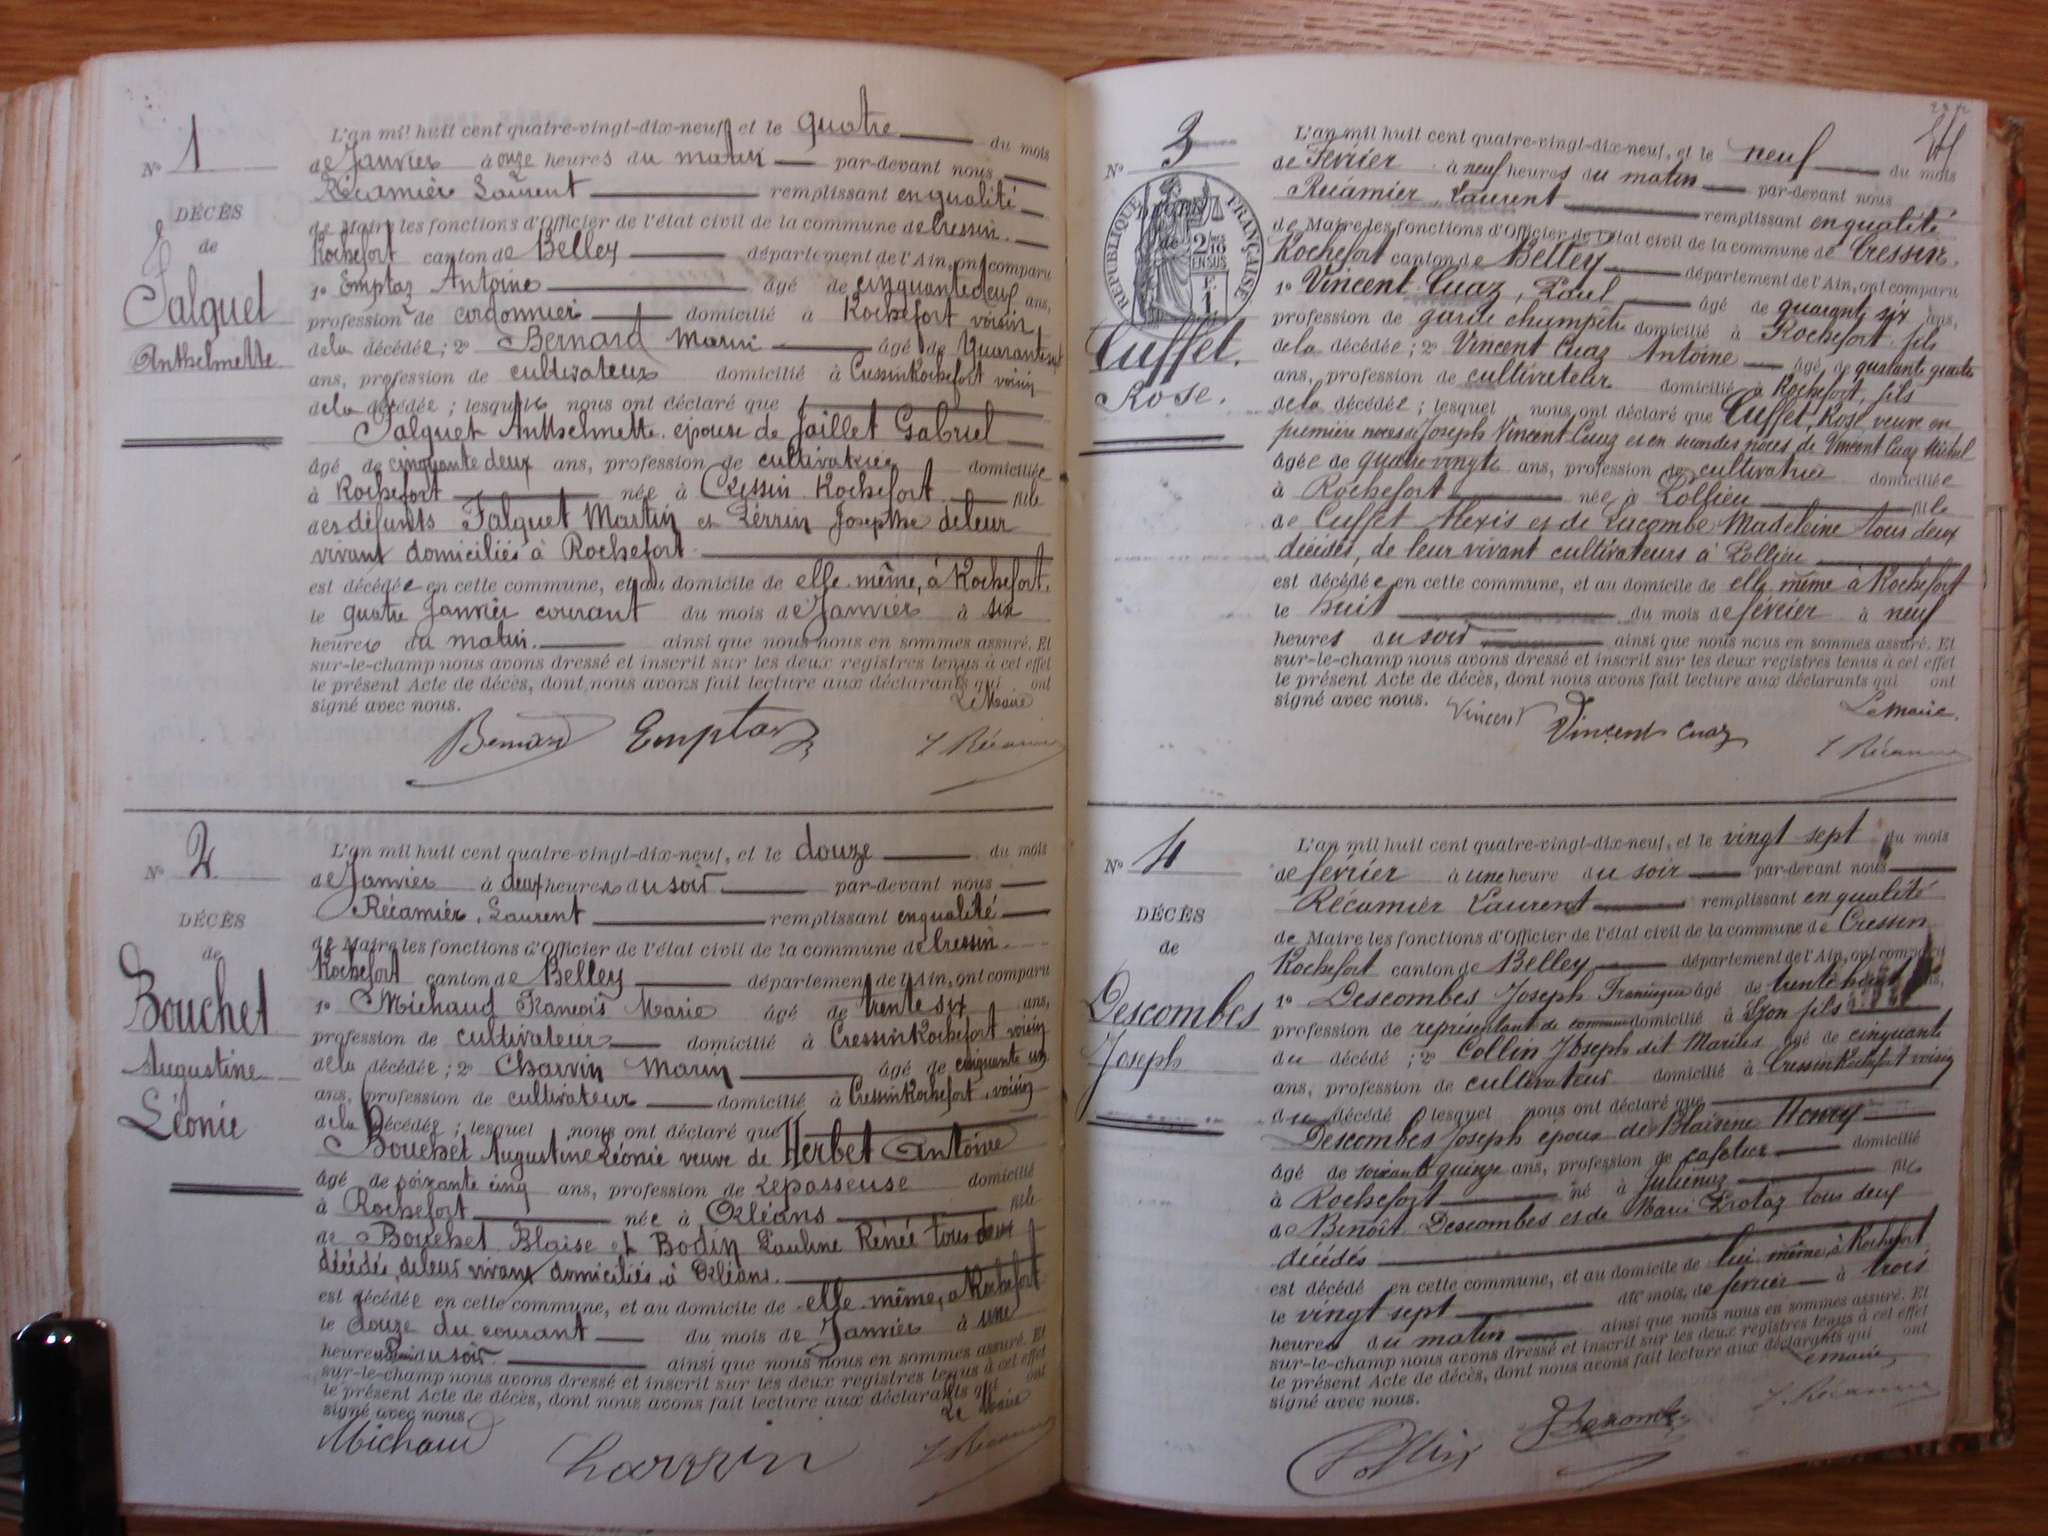 N° 1
DÉCÈS
de
Falquet
Anthelmette
L'an mil huit cent quatre-vingt-dix-neuf, et le quatre du mois
de Janvier à onze heures du matin par-devant nous
Récamier Laurent remplissant en qualité
de Maire les fonctions d'Officier de l'état civil de la commune de Cressin
Rochefort canton de Belley département de l'Ain, ont comparu
1° Emptaz Antoine âgé de cinquante deux ans,
profession de cordonnier domicilié à Rochefort voisin
de la décédée; 2° Bernard Marin âgé de Quarante
ans, profession de cultivateur domicilié à Cressin Rochefort voisin
de la décédée; lesquels nous ont déclaré que
Falquet Anthelmette épouse de Jaillet Gabriel
âgé de cinquante deux ans, profession de cultivatrice domiciliée
à Rochefort née à Cressin Rochefort fille
des défunts Falquet Martin et Perrin Josephte de leur
vivant domiciliés à Rochefort
est décédée en cette commune, et au domicile de elle même, à Rochefort.
le quatre Janvier courant du mois de Janvier à six
heures du matin. ainsi que nous nous en sommes assuré. Et
sur-le-champ nous avons dressé et inscrit sur les deux registres tenus à cet effet
le présent Acte de décès, dont nous avons fait lecture aux déclarants qui ont
signé avec nous. Le Maire
Bernard Emptaz L Récamier
N° 2
DÉCÈS
de
Bouchet
Augustine
Léonie
L'an mil huit cent quatre-vingt-dix-neuf, et le douze du mois
de Janvier à deux heures du soir par-devant nous
Récamier, Laurent remplissant en qualité
de Maire les fonctions d'Officier de l'état civil de la commune de Cressin
Rochefort canton de Belley département de l'Ain, ont comparu
1° Michaud François Marie âgé de trente six ans,
profession de cultivateur domicilié à Cressin Rochefort voisin
de la décédée; 2° Charvin Marin âgé de cinquante un
ans, profession de cultivateur domicilié à Cressin Rochefort, voisin
de la décédée; lesquel nous ont déclaré que
Bouchet Augustine Léonie veuve de Herbet Antoine
âgé de soixante cinq ans, profession de repasseuse domicilié
à Rochefort née à Orléans fille
de Bouchet Blaise et Bodin Pauline Rénée tous deux
décédés, de leur vivant domiciliés à Orléans.
est décédée en cette commune, et au domicile de elle même, à Rochefort
le douze du courant du mois de Janvier à une
heure du soir. ainsi que nous nous en sommes assuré. Et
sur-le-champ nous avons dressé et inscrit sur les deux registres tenus à cet effet
le présent Acte de décès, dont nous avons fait lecture aux déclarants qui ont
signé avec nous. Le Maire
Michaud Charvin L Récamier
N° 3
RÉPUBLIQUE FRANÇAISE
2/10
EN SUS
Cuffet.
Rose.
L'an mil huit cent quatre-vingt-dix-neuf, et le neuf du mois
de Février à neuf heures du matin par-devant nous
Récamier, Laurent remplissant en qualité
de Maire les fonctions d'Officier de l'état civil de la commune de Cressin.
Rochefort canton de Belley département de l'Ain, ont comparu
1° Vincent Cuaz, Paul âgé de quarante six ans,
profession de garde champêtre domicilié à Rochefort fils
de la décédée; 2° Vincent Cuaz Antoine âgé de quarante quatre
ans, profession de cultivateur domicilié à Rochefort, fils
de la décédée; lesquel nous ont déclaré que Cuffet, Rose, veuve en
première noces de Joseph Vincent Cuaz et en secondes noces de Vincent Cuaz Michel
âgée de quatre vingts ans, profession de cultivatrice domiciliée
à Rochefort née à Lollieu fille
de Cuffet Alexis et de Lacombe Madeleine tous deux
décédés, de leur vivant cultivateurs à Lollieu
est décédée en cette commune, et au domicile de elle même à Rochefort
le huit du mois de février à neuf
heures du soir ainsi que nous nous en sommes assuré. Et
sur-le-champ nous avons dressé et inscrit sur les deux registres tenus à cet effet
le présent Acte de décès, dont nous avons fait lecture aux déclarants qui ont
signé avec nous. Le Maire.
Vincent Vincent Cuaz L Récamier
N° 4
DÉCÈS
de
Descombes
Joseph
L'an mil huit cent quatre-vingt-dix-neuf, et le vingt sept du mois
de février à une heure du soir par-devant nous
Récamier Laurent remplissant en qualité
de Maire les fonctions d'Officier de l'état civil de la commune de Cressin
Rochefort canton de Belley département de l'Ain, ont comparu
1° Descombes Joseph âgé de trente ans,
profession de représentant de domicilié à Lyon fils
du décédé; 2° Collin Joseph dit âgé de cinquante
ans, profession de cultivateur domicilié à Cressin Rochefort voisin
du décédé lesquel nous ont déclaré que
Descombes Joseph époux de Blaisine Henry
âgé de soixante quinze ans, profession de cafetier domicilié
à Rochefort né à Juliénaz fils
de Benoît Descombes et de Marie Protaz tous deux
décédés
est décédé en cette commune, et au domicile de lui même à Rochefort
le vingt sept du mois de février à trois
heures du matin ainsi que nous nous en sommes assuré. Et
sur-le-champ nous avons dressé et inscrit sur les deux registres tenus à cet effet
le présent Acte de décès, dont nous avons fait lecture aux déclarants qui ont
signé avec nous. Le maire,
Collin J Descombes L Récamier